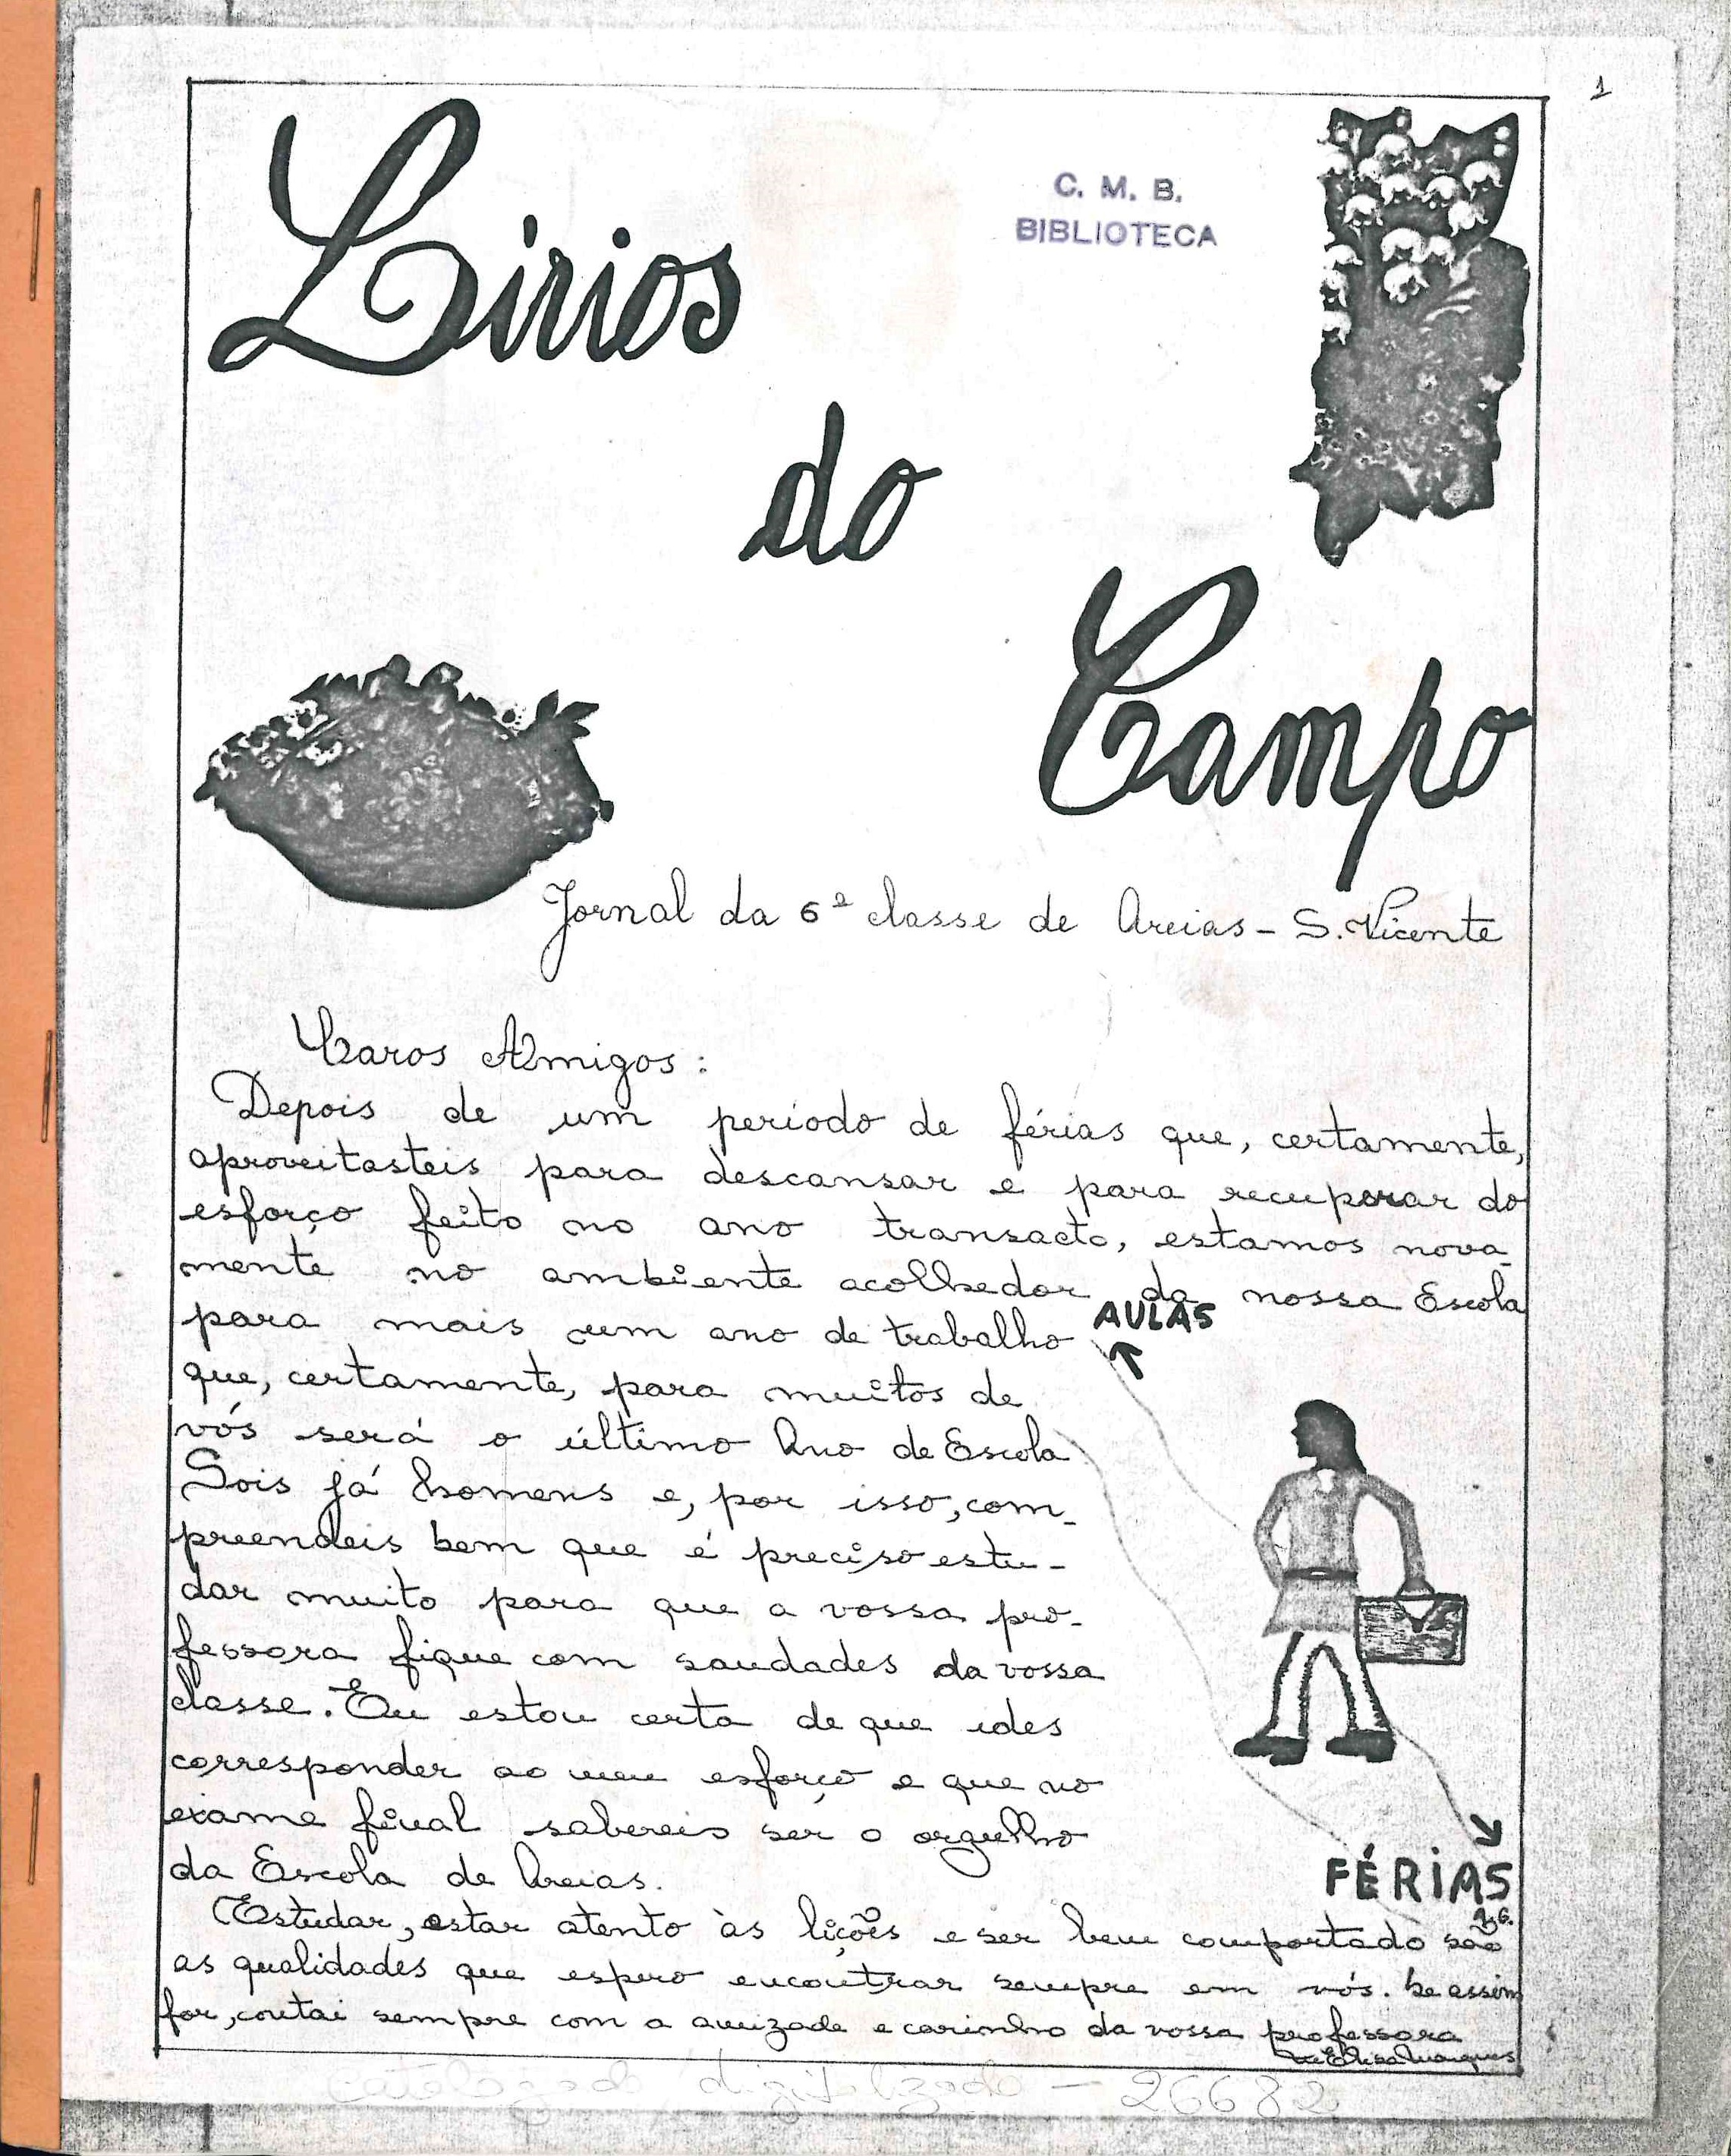 1
Lírios
C. M. B.
BIBLIOTECA
do
Campo
Jornal da 6ª classe de Areias - S. Vicente
Caros Amigos:
Depois de um período de férias que, certamente,
aproveitasteis para descansar e para recuperar do
esforço feito no ano transacto, estamos nova-
mente no ambiente acolhedor da nossa Escola
para mais um ano de trabalho
que, certamente, para muitos de
vós será o último Ano de Escola
Sois já homens e, por isso, com-
preendeis bem que é preciso estu-
dar muito para que a vossa pro-
fessora fique com saudades da vossa
classe. Eu estou certa de que ides
corresponder ao meu esforço e que no
exame final sabereis ser o orgulho
da Escola de Areias.
Estudar, estar atento às lições e ser bem comportado são
as qualidades que espero encontrar sempre em vós. Se assim
for, contai sempre com a amizade e carinho da vossa professora
Elisa Marques
AULAS
FÉRIAS
catalogado digitalizado - 26682